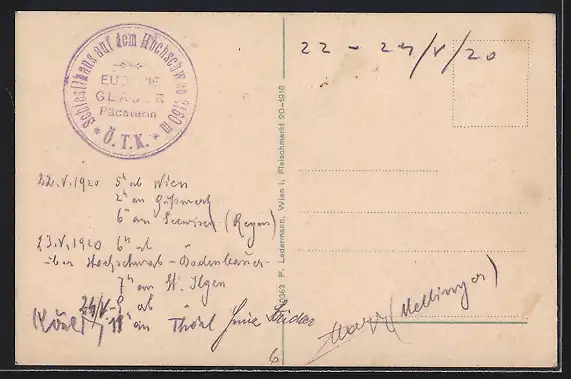 Schiestlhaus auf dem Hochschwab 2160 m
EUGENIE
GLASER
Pächterin
* Ö.T.K. *
22 – 24/V/20
22.V.1920 5h ab Wien
2h an Gußwerk
6h an Seewiesen (Regen)
23.V.1920 6h ab "
über Hochschwab – Bodenbauer –
7h an St. Ilgen
24/V – 9 ab "
11h an Thörl
(Mellinger)
20363 P. Ledermann, Wien I, Fleischmarkt 20–1916
6